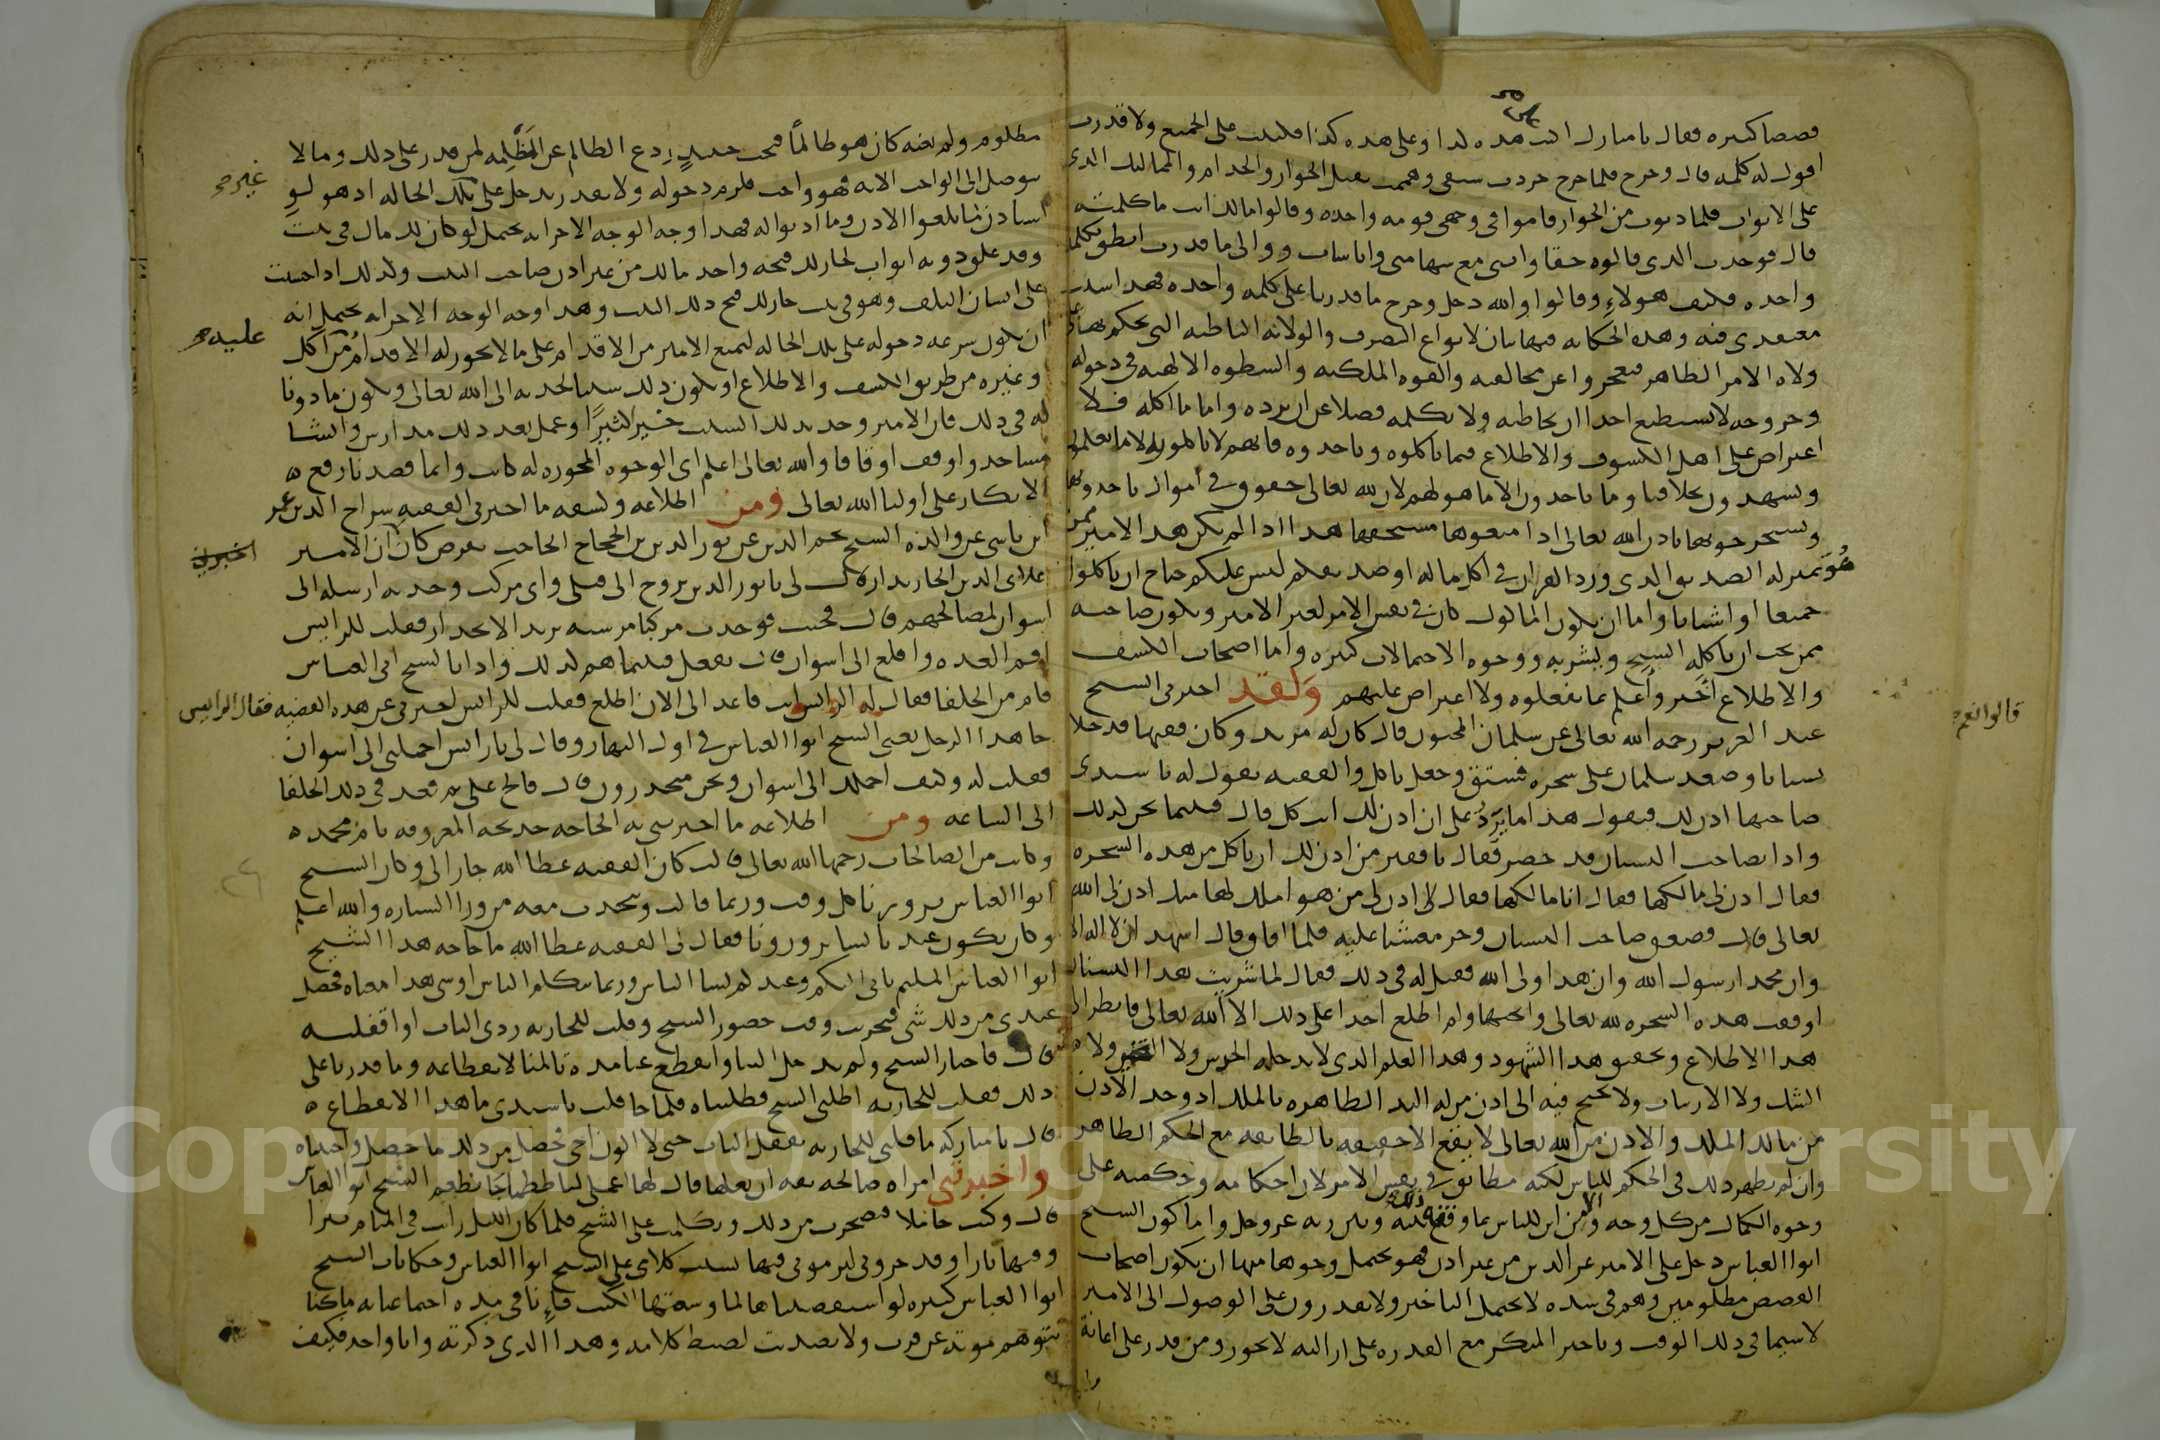 قصصا كثيره فقال يا مبارك اكتب هده لدا وعلى هده كذا فكتبت على الجميع ولا قدرت
اقول له كلمه قال وخرح فلما خرح جردت سيفى وهممت بقتل الجوار والخدام والمماليك الذى
على الابواب فلما دنوت من الجوار قاموا فى وجهى قومه واحده وقالوا مالك انت ما كلمته
قال فوجدت الدى قالوه حقا واننى مع شهامتى وانا ساب ووالى ما قدرت انطق بكلمه
واحده فكيف هولاءِ وقالوا والله دخل وخرح ما قدرنا على كلمه واحده فهدا
معتقدى فيه وهذه الحكايه فيها بيان لانواع التصرف والولايه الباطنه التى يحكم بها على
ولاه الامر الظاهر فيعجزوا عن مخالفته والقوه الملكيه والسطوه الالهيه فى دخوله
وخروجه لا يستطيع احدا ان يخاطبه ولا يكلمه فضلا عن ان يرده واما ما اكله فلا
اعتراض على اهل الكشوف والاطلاع فيما ياكلوه وياخدوه فانهم لا ياكلون الا ما يعلموا
ويشهدون حلافيا وما ياخدون الا ما هو لهم لان لله تعالى حقوق فى اموال ياخدونها
ويستخرجونها بادن الله تعالى ادا منعوها مستحقها هدا ادا لم يكن هدا الامير ممن
هُوَ بمنزله الصديق الدى ورد القران فى اكل ماله او صديقكم ليس عليكم جناح ان ياكلوا
جميعا او اشتاتا واما ان يكون الماكول كان فى نفس الامر لغير الامير ويكون صاحبه
ممن يحب ان ياكله الشيخ ويشربه ووجوه الاحتمالات كثيره واما اصحاب الكشف
والاطلاع اخبر واعلم بما يفعلوه ولا اعتراض عليهم وَلقد اخبرنى الشيخ
عبد العزيز رحمه الله تعالى عن سلمان المجنون قال كان له مريد وكان فقيها قد دخلا
بستانا وصعد سلمان على شجره فستق وجعل ياكل والفقيه يقول له يا سيدى
صاحبها ادن لك فيقول هدا ما يَرِدُ على ان ادن لك انت كل قال فبينما نحن كدلك
وادا بصاحب البستان قد حضر فقال يا فقير من ادن لك ان ياكل من هده الشجره
فقال ادن لى مالكها فقال انا مالكها فقال لا ادن لى من هو املك لها منك ادن لى الله
تعالى قال فصعق صاحب البستان وخر مغشيا عليه فلما افاق وقال اشهد ان لا اله الا
وان محمد ارسول الله وان هدا ولى الله فقيل له فى دلك فقال لما شريت هدا البستان
اوقفت هده الشجره لله تعالى واحبتها ولم اطلع احدا على دلك الا الله تعالى فانظر الى
هدا الاطلاع وتحقق هدا الشهود وهدا العلم الدى لا يدخله الحدس ولا ولا
الشك ولا الارتياب ولا يحتج فيه الى ادن من له اليد الظاهره بالملك اد وجد الادن
من مالك الملك والادن من الله تعالى لا يقع الا حقيقه بالطابقه مع الحكم الظاهر
وان لم يظهر دلك فى الحكم للناس لكنه مطابق فى نفس الامر لان احكامه وحكمته على
وجوه الكمال من كل وجه ومن اين للناس بما وقع بينه وبين ربه عز وجل واما كون الشيخ
ابوا العباس دخل على الامير عز الدين من غير ادن فهو يحتمل وجوها منها ان يكون اصحاب
القصص مطلومين وهم فى شده لا يحتمل التاخير ولا يقدرون على الوصول الى الامير
لاسيما فى دلك الوقت وتاخير المنكر مع القدره على ازالته لا يجوز ومن قدر على اعانة
قالوا نعم
مظلوم ولم يعنه كان هو ظالمًا فيجب حينيدٍ ردع الظالم عن المَظْلِمه لمن قدر على دلك وما لا
يوصل الى الواجب الا به فهو واجب فلزم دخوله ولا يقدر يدخل على تلك الحاله اد هو لو
استادن ما بلغوا الادن وما ادنوا له فهدا وجه الوجه الاخر انه يحتمل لو كان لك مال فى بيت
وقد غلق دونه ابواب لجارلك فيجه واحد مالك من غير ادن صاحب البيت ولدلك اداخفت
على انسان التلف وهو فى بيت جارلك فتح دلك البيت وهدا وجه الوجه الاخر انه يحتمل انه
ان يكون سرعه دخوله على تلك الحاله ليمنع الامير من الاقدام على ما لا يجوز له الاقدام من اكل
وغيره من طريق الكشف والاطلاع او يكون دلك سببا لجدبه الى الله تعالى ويكون مادونا
له فى دلك فان الامير وجد بدلك السبب خيرا كثيرًا وعمل بعد دلك مدارس وانشا
مساجد واوقف اوقافا والله تعالى اعلم اى الوجوه المجوره له كانت وانما قصدنا رفع ه
الانكار على اوليا الله تعالى ومن اطلاعه وكشفه ما اخبرنى الفقيه سراج الدين عمر
ابن ياسين عن والده الشيخ نجم الدين عن نور الدين بن الحجاج الحاجب بقوص كان ان الامير
علاى الدين الخازندار قال لى يا نور الدين تروح الى قبلى واى مركب وجدته ارسله الى
اسوان لمصالحهم قال فجيت فوجدت مركبا مرسيه تريد الانحدار فقلت للرايس
اقم العده واقلع الى اسوان قال نفعل فبينما هم كدلك وادا بالشيخ ابى العباس
قام من الحلفا فقال له الرايس انت قاعد الى الان اطلع فقلت للرايس اخبرنى عن هده القضيه فقال الرايس
جا هدا الرجل يعنى الشيخ ابوا العباس فى اول النهار وقال لى يا رايس احملنى الى اسوان
فقلت له وكيف احملك الى اسوان ونحن منحدرون قال فالح على ثم قعد فى دلك الحلفا
الى الساعه ومن اطلاعه ما اخبرتنى به الحاجه خديجه المعروفه بام محمد ه
وكانت من الصالحات رحمها الله تعالى قالت كان الفقيه عطا الله جارا لى وكان الشيخ
ابوا العباس يزورنا كل وقت وربما قالت وتتحدث معه من ورا الستاره والله اعلم
وكان يكون عندنا نسا يزورونا فقال لى الفقيه عطا الله ما حاجه هدا الشيخ
ابوا العباس الملثم ياتى اليكم وعندكم نسا الناس وربما يتكلم الناس او شى هدا معناه فحصل
عندى من دلك شى فتحريت وقت حضور الشيخ وقلت للجاريه ردى الباب او اقفليه
قالت فاجتاز الشيخ ولم يدخل الينا وانقطع عنا مده تالمنا لانقطاعه وما قدرنا على
دلك فقلت للجاريه اطلبى الشيخ فطلبناه فلما جا قلت يا سيدى ما هدا الانقطاع ه
قال يا مباركه ما قلتى للجاريه تقفل الباب حتى لا اكون اجى فحصل من دلك ما حصل واخبرناه
واخبرتنى امراه صالحه ثقه ان بعلها قال لها اعملى لنا طعاما نطعم الشيخ ابوا العباس
قالت وكنت حاملا فضجرت من دلك وتكلمت على الشيخ فلما كان الليل رايت فى المنام بيرا
وفيها نارا وقد خروفى ليرمونى فيها بسبب كلامى على الشيخ ابوا العباس وحكايات الشيخ
ابوا العباس كثيره لو استقصيناها لما وسعتها الكتب فاِننا فى مده اجتماعنا به ما كنا
نتوهم موته عن قرب ولا تصديت لضبط كلامه وهدا الدى دكرته وانا واحد فكيف
غيره صح
عليه صح
اخبرنى